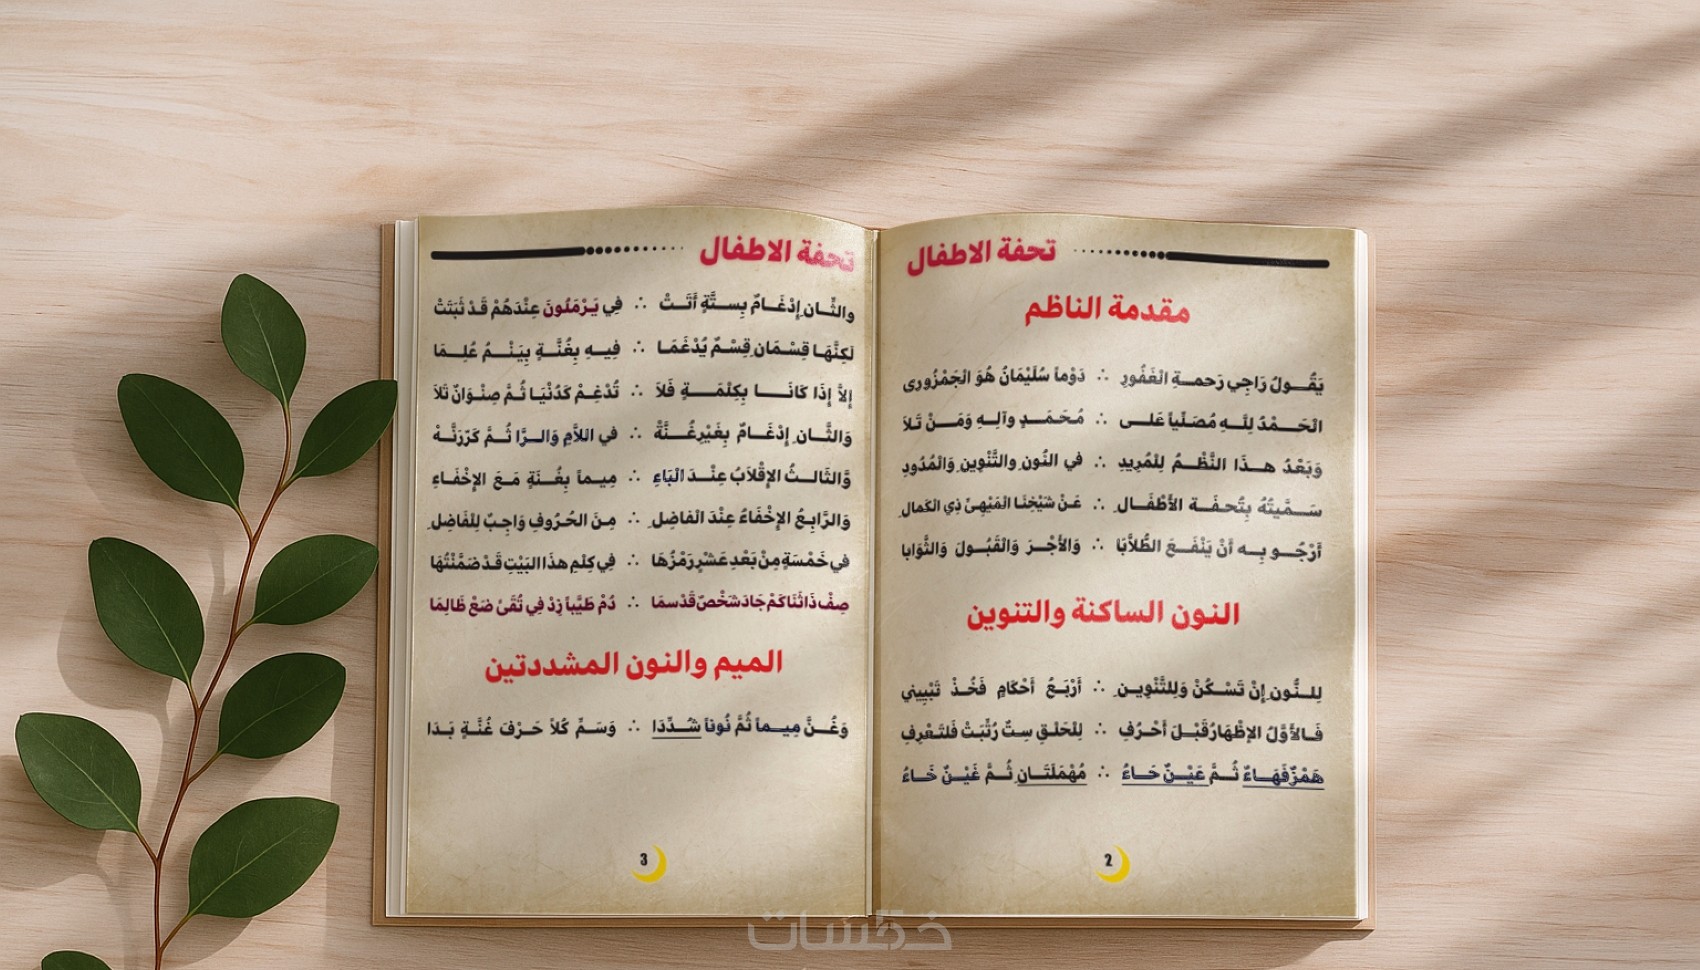 تحفة الاطفال
مقدمة الناظم
يَقُـــولُ رَاجِي رَحمـةِ الْغَفُورِ ∴ دَوْماً سُلَيْمَانُ هُوَ الْجَمْزُورى
الْحَـــمْدُ لِلَّـهِ مُصَلِّياً عَلـــى ∴ مُحَـمَـدٍ وآلـِهِ وَمَـــنْ تَـلاَ
وَبَعْدُ هـــذَا النَّظْـمُ لِلْمُرِيدِ ∴ في النُونِ والتَّنْوِينِ وَالْمُدُودِ
سَـــمَّيتُهُ بِتُحفَـةِ الأَطْفَـالِ ∴ عَـنْ شَيْخِنَـا الْمَيْهِىِّ ذِي الْكَمالِ
أَرْجُـــو بِـه أَنْ يَنْفَـعَ الطُّلاَّبَا ∴ وَالأَجْـرَ وَالْقَبُـولَ وَالثَّوَابا
النون الساكنة والتنوين
لِلنُّونِ إِنْ تَسْـكُنْ وَلِلتَّنْوِيـنِ ∴ أَرْبَـعُ أَحْكَامٍ فَخُـذْ تَبْيِيني
فَـالأَوَّلُ الإظْهَارُ قَبْـلَ أَحْرُفِ ∴ لِلْحَلْقِ سِتٌ رُتِّبَـتْ فَلتَـعْرِفِ
هَمْزٌ فَهَـاءٌ ثُـمَّ عَيْـنٌ حَـاءُ ∴ مُهْمَلَتَـانِ ثُـمَّ غَيْـنٌ خَـاءُ
2
تحفة الاطفال
والثَّـانِ إِدْغَـامٌ بِسـتَّةٍ أَتَـتْ ∴ فِي يَـرْمَلُونَ عِنْدَهُمْ قَدْ ثَبَتَتْ
لَكِنَّهَـا قِسْمَانِ قِسْمٌ يُدْغَمَـا ∴ فِيـهِ بِغُنَّـةٍ بِيَنْـمُـو عُلِـمَا
إِلاَّ إِذَا كَانَـــا بِكِلْمَـــةٍ فَلاَ ∴ تُدْغِـمْ كَدُنْيَـا ثُـمَّ صِنْـوَانٌ تَلاَ
وَالثَّـانِ إِدْغَـامٌ بِغَيْرِغُـنَّةْ ∴ في اللاَّمِ وَالـرَّا ثُـمَّ كَرِّرَنَّـهْ
وَالثَّالـثُ الإِقْلاَبُ عِنْـدَ الْبَاءِ ∴ مِيـماً بِغُـنَةٍ مَـعَ الإِخْفَـاءِ
وَالرَّابِـعُ الإِخْفَاءُ عِنْدَ الْفاضِلِ ∴ مِـنَ الحُـرُوفِ وَاجِبٌ لِلْفَاضِلِ
في خَمْسَةٍ مِنْ بَعْدِ عَشْرٍ رَمْزُهَا ∴ فِي كِلْمِ هذَا البَيْتِ قَـدْ ضَمَّنْتُهَا
صِفْ ذَا ثَنَا كَمْ جَادَ شَخْصٌ قَدْ سمَا ∴ دُمْ طَيِّباً زِدْ فِي تُقَىً ضَعْ ظَالِمَا
الميم والنون المشددتين
وَغُـــنَّ مِيـماً ثُمَّ نُوناً شُـدِّدَا ∴ وَسَـمِّ كُلاً حَـرْفَ غُنَّـةٍ بَـدَا
3
خمسات